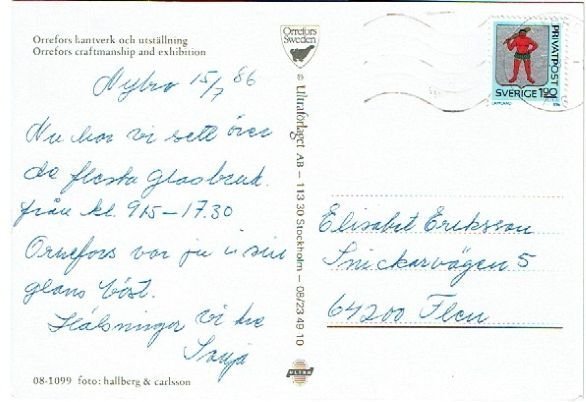 Orrefors hantverk och utställning
Orrefors craftmanship and exhibition
Nybro 15/7 86
Nu har vi sett över
de flesta glasbruk.
från kl. 915–17.30
Orrefors var ju i sin
glans bäst.
Hälsningar vi tre
Sonja
08-1099 foto: hallberg & carlsson
Orrefors
Sweden
© Ultraförlaget AB – 113 30 Stockholm – 08/23 49 10
ULTRA
PRIVATPOST
SVERIGE 190
LAPPLAND
Elisabet Eriksson
Snickarvägen 5
64200 Flen